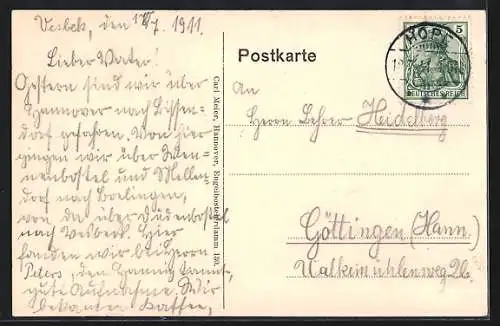 Vesbek, den 17/7. 1911.
Lieber Vater!
Gestern sind wir über
Hannover nach Bissen-
dorf gefahren. Von hier
gingen wir über Wen-
nenbostel und Mellen-
dorf nach Brelingen,
von da über Dudenbostel
nach Vesbeck. Hier
fanden wir bei Herrn
Peters, den
gute Aufnahme. Wir
bekamen Kaffee,
Carl Meier, Hannover, Engelbostelerdamm 130.
Postkarte
HOPE
5
DEUTSCHES REICH
An
Herrn Lehrer Heidelberg
Göttingen (Hann.)
Walkemühlenweg 26.